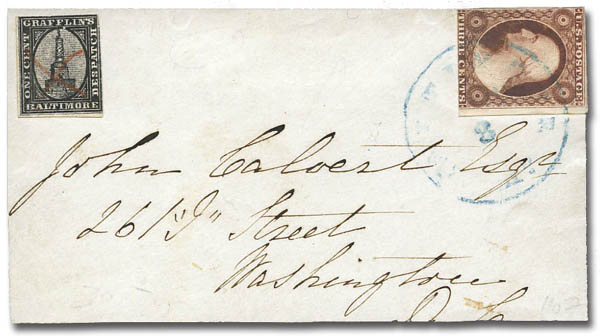 GRAFFLIN'S
ONE CENT
DESPATCH
BALTIMORE
U.S. POSTAGE
THREE CENTS
8
John Calvert Esqr
261 "I" Street
Washington
D. C.